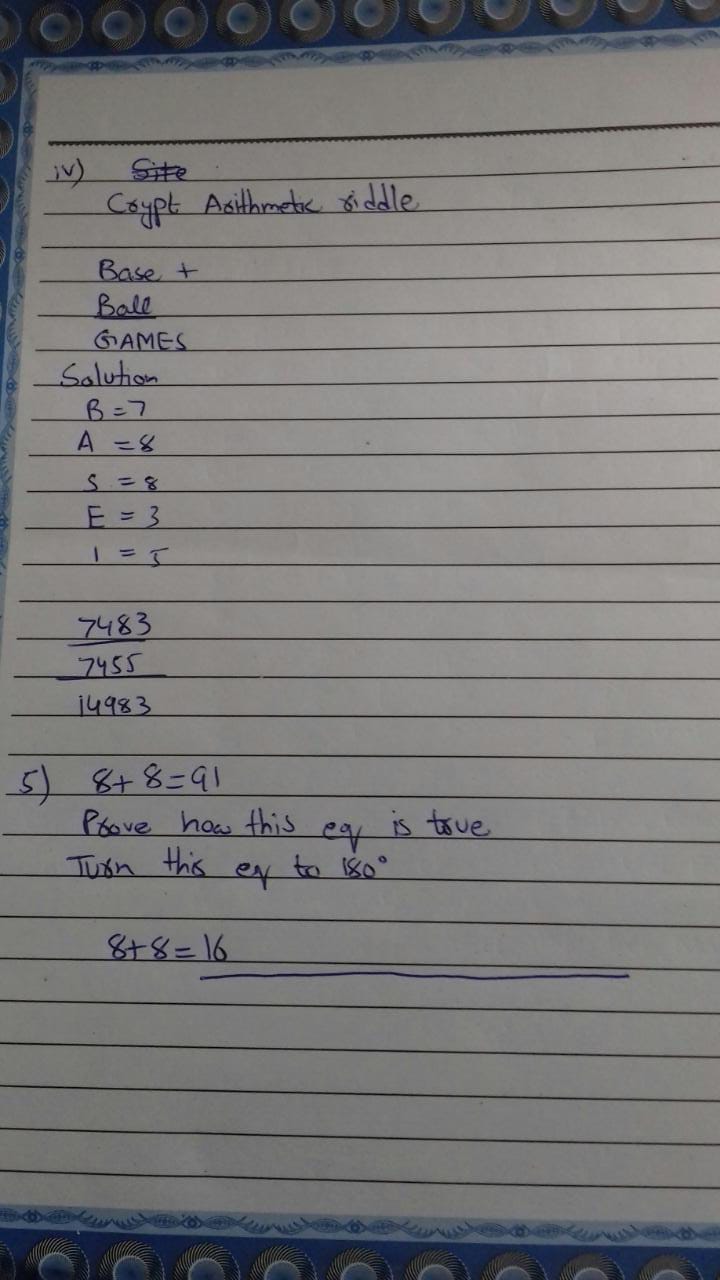 iv) Site
Crypt Arithmetic riddle
Base +
Ball
GAMES
Solution
B = 7
A = 8
S = 8
E = 3
l = 5
7483
7455
14983
5) 8+8=91
Prove how this eq is true
Turn this eq to 180°
8+8=16